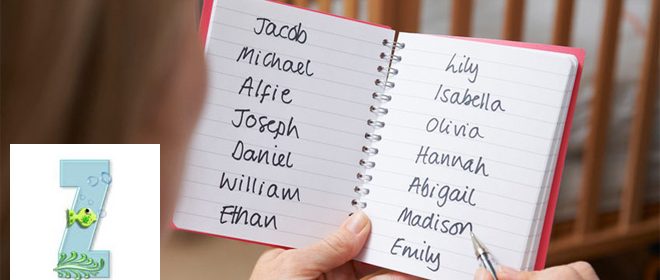 Jacob
Michael
Alfie
Joseph
Daniel
William
Ethan
Lily
Isabella
Olivia
Hannah
Abigail
Madison
Emily
Z